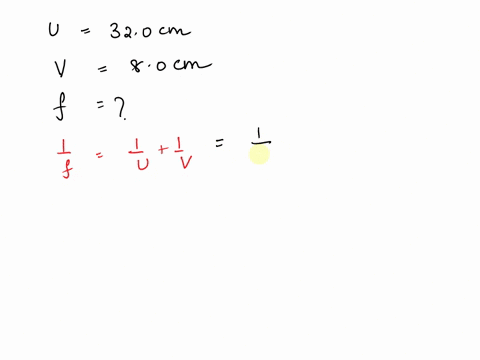 u = 32.0 cm
V = 8.0 cm
f = ?
1/f = 1/U + 1/V = 1/